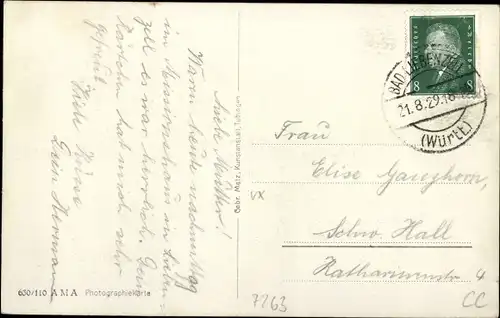 Liebe Mutter!
Waren heute nachmittag
im Missionshaus in Lieben-
zell es war herrlich. Dein
Kärtchen hat mich sehr
gefreut
Viele Küsse
Dein Hermann
Gebr. Metz, Kunstverlag, Tübingen
630/110 A M A Photographiekarte
8 8
BAD LIEBENZELL
21.8.29.18
(Württ.)
Frau
Elise Ganzhorn,
Schw. Hall
Katharinenstr. 4
7263
CC